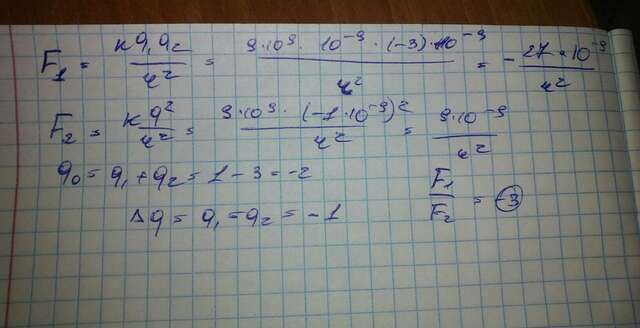 F₁ = кq₁q₂/r² = 9·10⁹·10⁻⁹·(-3)·10⁻⁹/r² = -27·10⁻⁹/r²
F₂ = кq²/r² = 9·10⁹·(-1·10⁻⁹)²/r² = 9·10⁻⁹/r²
q₀ = q₁+q₂ = 1-3 = -2
F₁/F₂ = -3
Δq = q₁ = q₂ = -1